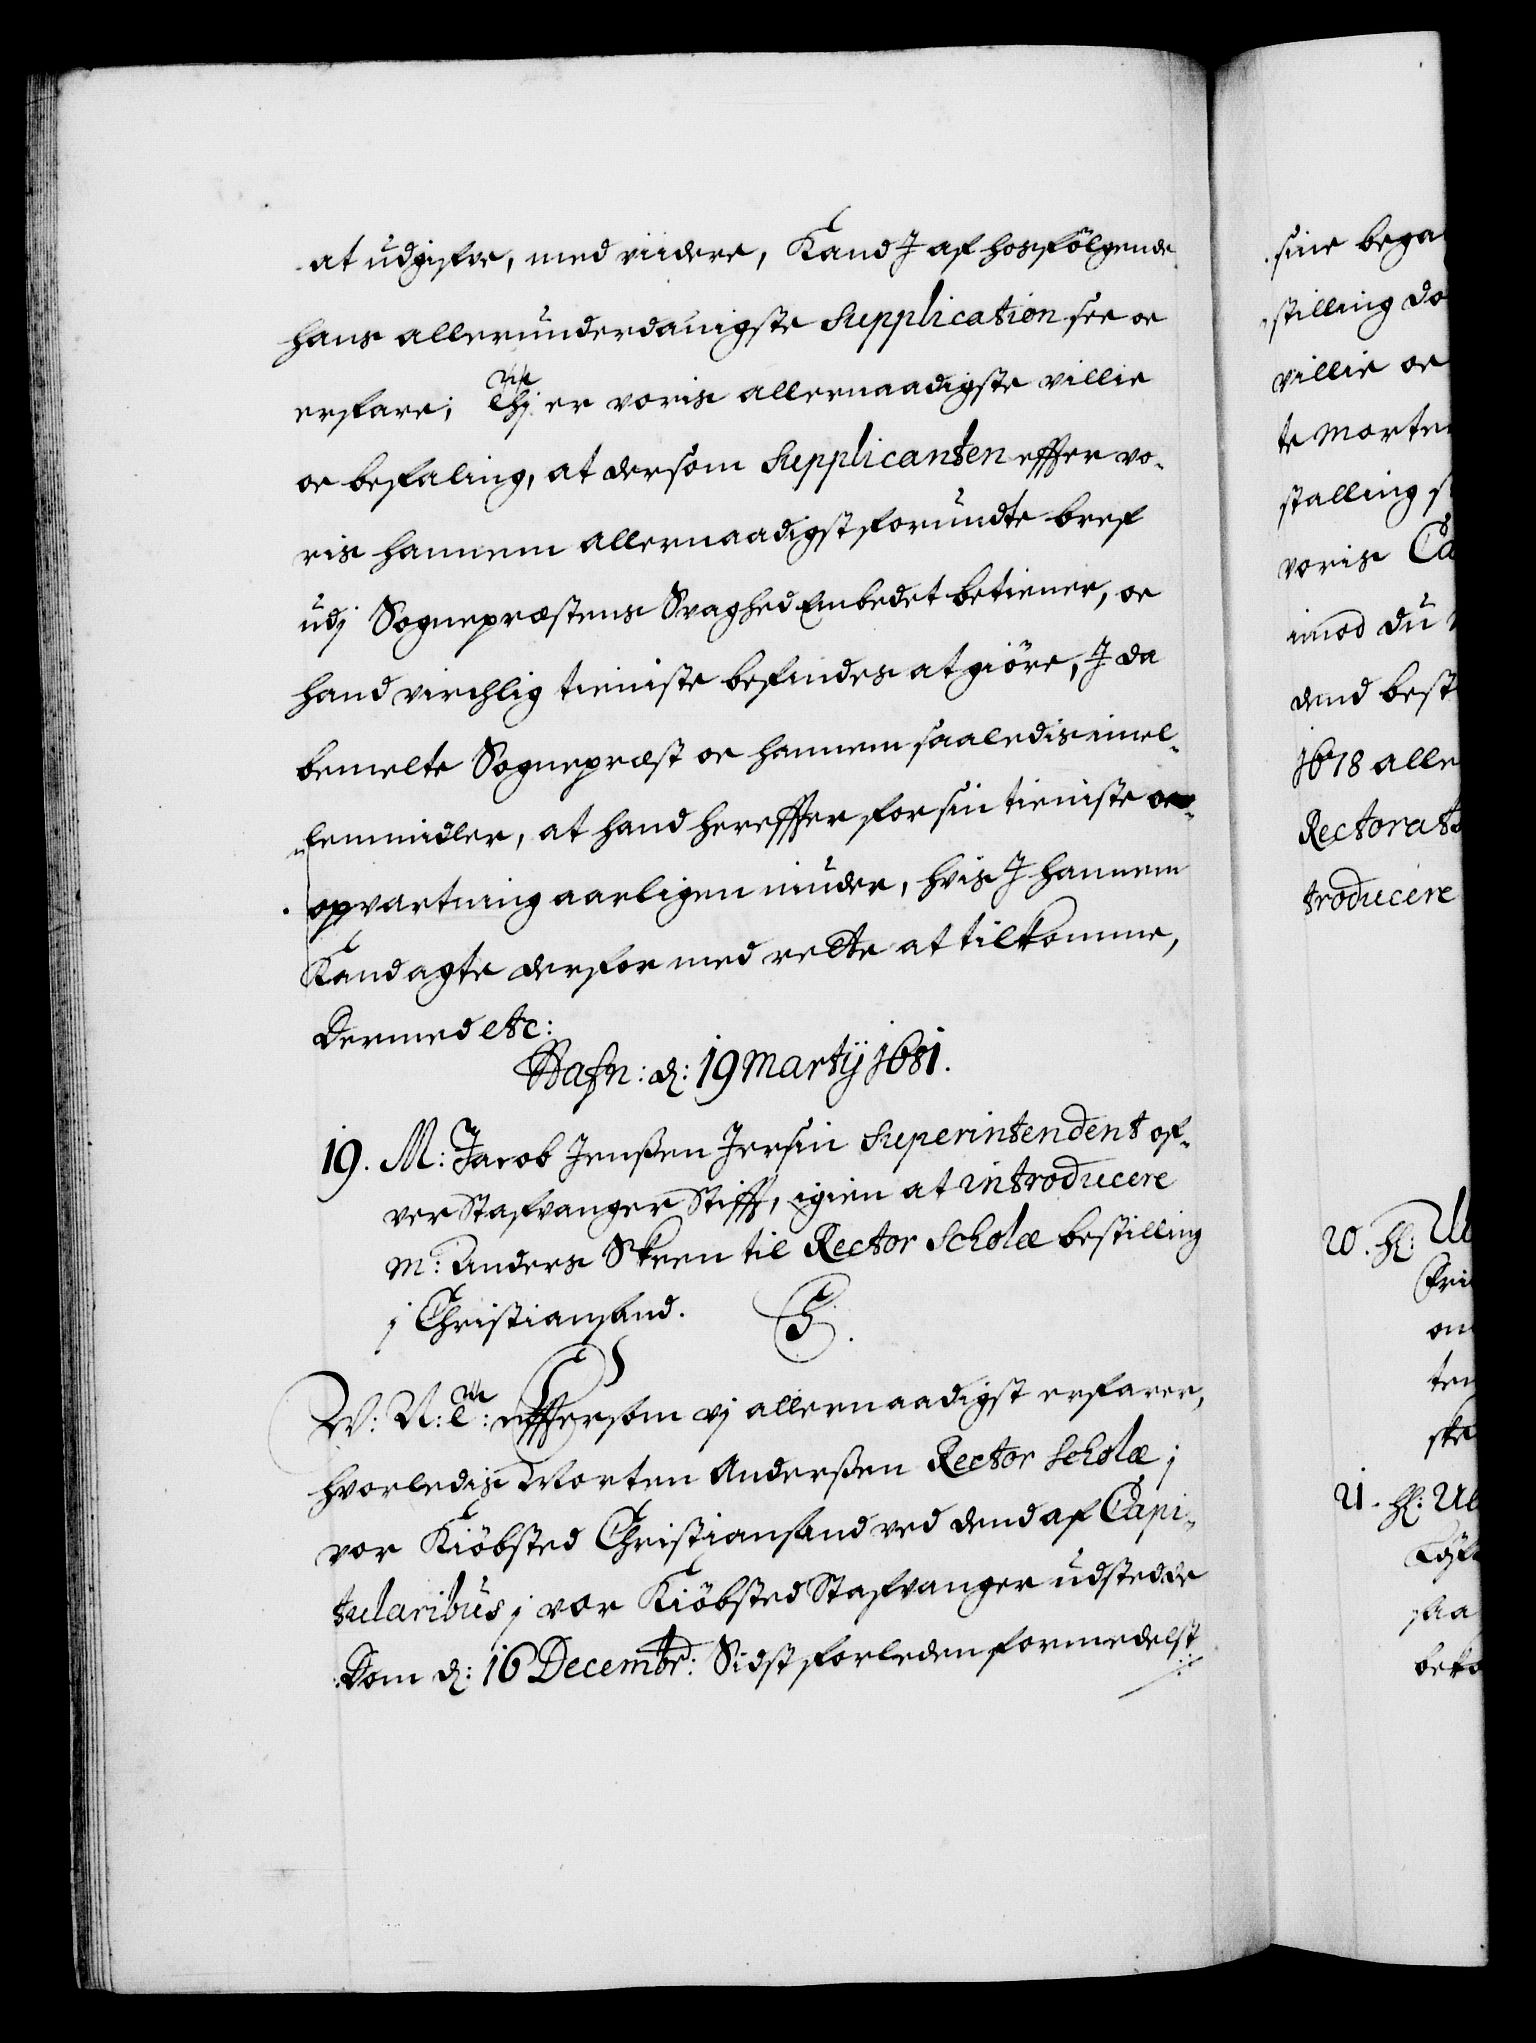 at udgifve, med viidere, Kand J af hosfölgende
hans allerunderdanigste Supplication see oc
erfare; thj er voris allernaadigste villie
oc befaling, at dersom Supplicanten effter vo-
ris hannem allernaadigst forundte bref
udj Sogneprestens Svaghed Embedet betiener, oc
hand virchlig tieniste befindes at giöre, J da
bemelte Sognepræst oc hannem saaledis imel-
lemmidler, at hand hereffter for sin tieniste oc
opvartning aarligen niuder, hvis J hannem
Kand agte derfor med rette at tilkomme,
Dermed etc:
Hafn: d: 19 Martij 1681.
19. M: Jacob Jenßen Jersin Superintendent of-
ver Stafvanger Stifft, igien at introducere
M: Anders Skeen til Rector Scholæ bestilling
j Christiansand. C5.
W: N: t: efftersom vj allernaadigst erfarer,
hvorledis Morten Anderßen Rector Scholæ j
vor Kiöbsted Christiansand ved dend af Capi-
tularibus j vor Kiöbsted Stafvanger udstedde
Dom d: 16 Decembr: Sidst forleden formedelst
sine bega
stilling do
villie oc
te Morten
stalling s
voris Ca
imod du
dend best
1678 alle
Rectorats
troducere
20. H:
om
ten
ske
21. H:
saa
beko